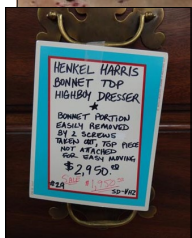 HENKEL HARRIS
BONNET TOP
HIGHBOY DRESSER
★
BONNET PORTION
EASILY REMOVED
BY 2 SCREWS
TAKEN OUT, TOP PIECE
NOT ATTACHED
FOR EASY MOVING
$2,950.00
SALE
#29 SD-VHZ